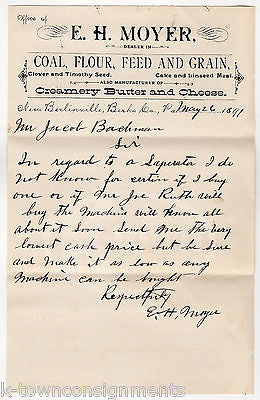 Office of
E. H. MOYER,
DEALER IN
COAL, FLOUR, FEED AND GRAIN,
Clover and Timothy Seed. Cake and Linseed Meal.
ALSO MANUFACTURER OF
Creamery Butter and Cheese.
New Berlinville, Berks Co., Pa. May 26 1891
Mr Jacob Bachman
Sir
In regard to a Seperator I do
not Know for certin if I buy
one or if Mr Joe Ruth will
buy the Machine will Know all
about it Soon Send Me the very
lowest cash price but be sure
and make it as low as any
Machine can be bought
Respectfully
E. H. Moyer
k-townconsignments